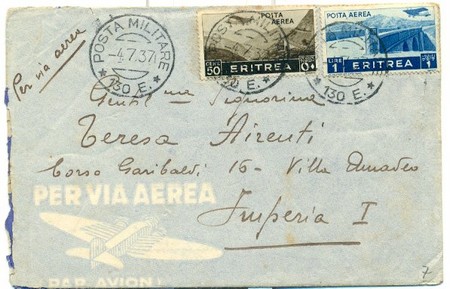 Per via aerea
POSTA MILITARE
-4.7.37
* 130 E. *
POSTA AEREA
CENT 50
ERITREA
POSTA AEREA
LIRE 1
ERITREA
* 130 E. *
Gent.ma Signorina
Teresa Airenti
Corso Garibaldi 16 - Villa Amadeo
Imperia I
PER VIA AEREA
PAR AVION
7